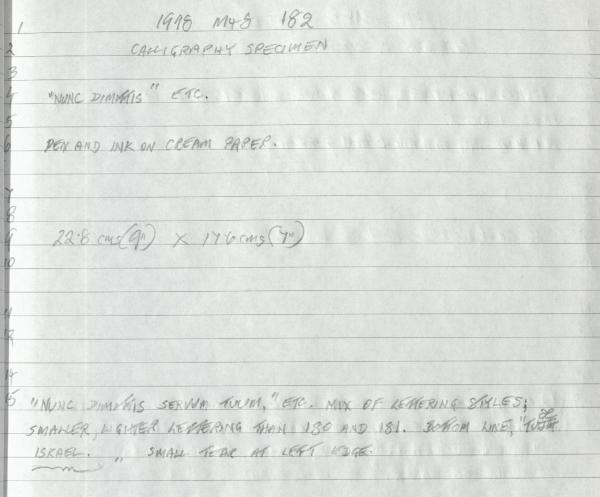 1 1978 M48 182
2 CALLIGRAPHY SPECIMEN
3
4 "NUNC DIMITTIS" ETC.
5
6 PEN AND INK ON CREAM PAPER.
7
8
9 22.8 cms (9") X 17.6 cms (7")
10
11
12
14
15 "NUNC DIMITTIS SERVUM TUUM," ETC. MIX OF LETTERING STYLES;
SMALLER, LIGHTER LETTERING THAN 180 AND 181. BOTTOM LINE, "
ISRAEL. " SMALL TEAR AT LEFT EDGE.